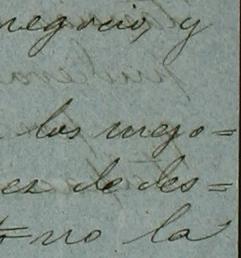 negocio, y
los mejo=
es de des=
=no la